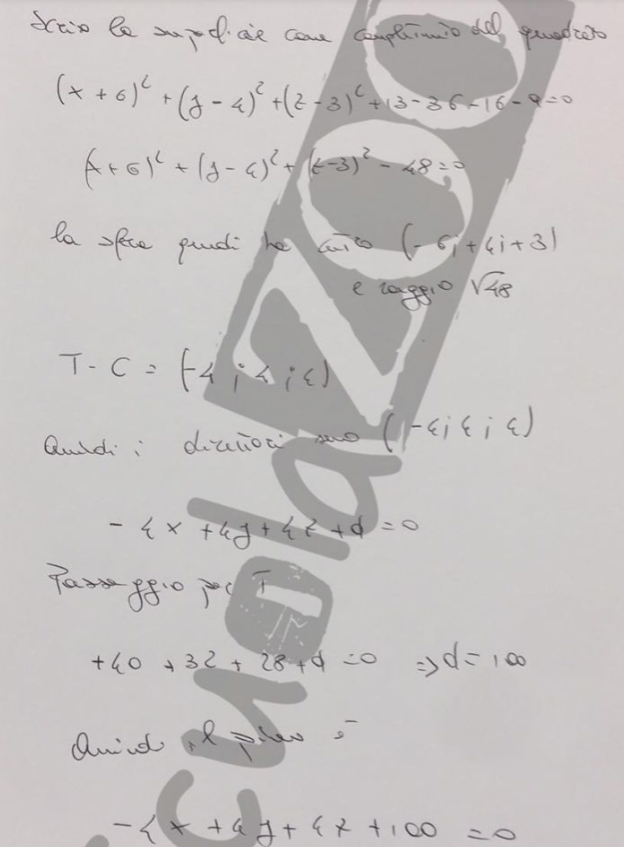 Scrivo la superficie come completamento del quadrato
(x + 6)² + (y - 4)² + (z - 3)² + 13 - 36 - 16 - 9 = 0
(x + 6)² + (y - 4)² + (z - 3)² - 48 = 0
la sfera quindi ha centro (-6; +4; +3)
e raggio √48
T - C = (-4; 4; 4)
Quindi i direttori sono (-4; 4; 4)
- 4x + 4y + 4z + d = 0
Passaggio per T
+40 + 32 + 28 + d = 0 => d = 100
Quindi il piano è
- 4x + 4y + 4z + 100 = 0